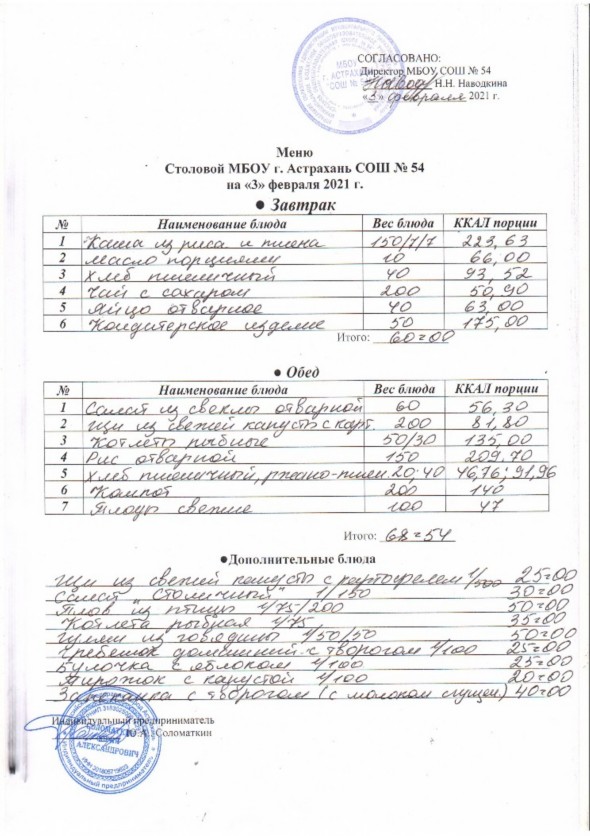 СОГЛАСОВАНО:
Директор МБОУ СОШ № 54
Н.Н. Наводкина
«3» февраля 2021 г.
МБОУ
г. АСТРАХАНИ
"СОШ № 54"
Меню
Столовой МБОУ г. Астрахань СОШ № 54
на «3» февраля 2021 г.
● Завтрак
№ Наименование блюда Вес блюда ККАЛ порции
1 Каша из риса и пшена 150/7/7 223,63
2 Масло порциями 10 66,00
3 Хлеб пшеничный 40 93,52
4 Чай с сахаром 200 50,90
5 Яйцо отварное 40 63,00
6 Кондитерское изделие 50 175,00
Итого: 60=00
● Обед
№ Наименование блюда Вес блюда ККАЛ порции
1 Салат из свеклы отварной 60 56,30
2 Щи из свежей капусты с карт. 200 81,80
3 Котлеты рыбные 50/30 135,00
4 Рис отварной 150 209.70
5 Хлеб пшеничный, ржано-пшен. 20;40 46,76; 91,96
6 Компот 200 140
7 Плоды свежие 100 47
Итого: 68=54
●Дополнительные блюда
Щи из свежей капусты с картофелем 1/500 25=00
Салат "Столичный" 1/150 30=00
Плов из птицы 1/75/200 50=00
Котлета рыбная 1/75 35=00
Гуляш из говядины 1/50/50 50=00
Гребешок домашний с творогом 1/100 25=00
Булочка с яблоком 1/100 25=00
Пирожок с капустой 1/100 20=00
Запеканка с творогом (с молоком сгущен) 40=00
Индивидуальный предприниматель
Ю.А. Соломаткин
СОЛОМАТКИН
ЮРИЙ
АЛЕКСАНДРОВИЧ